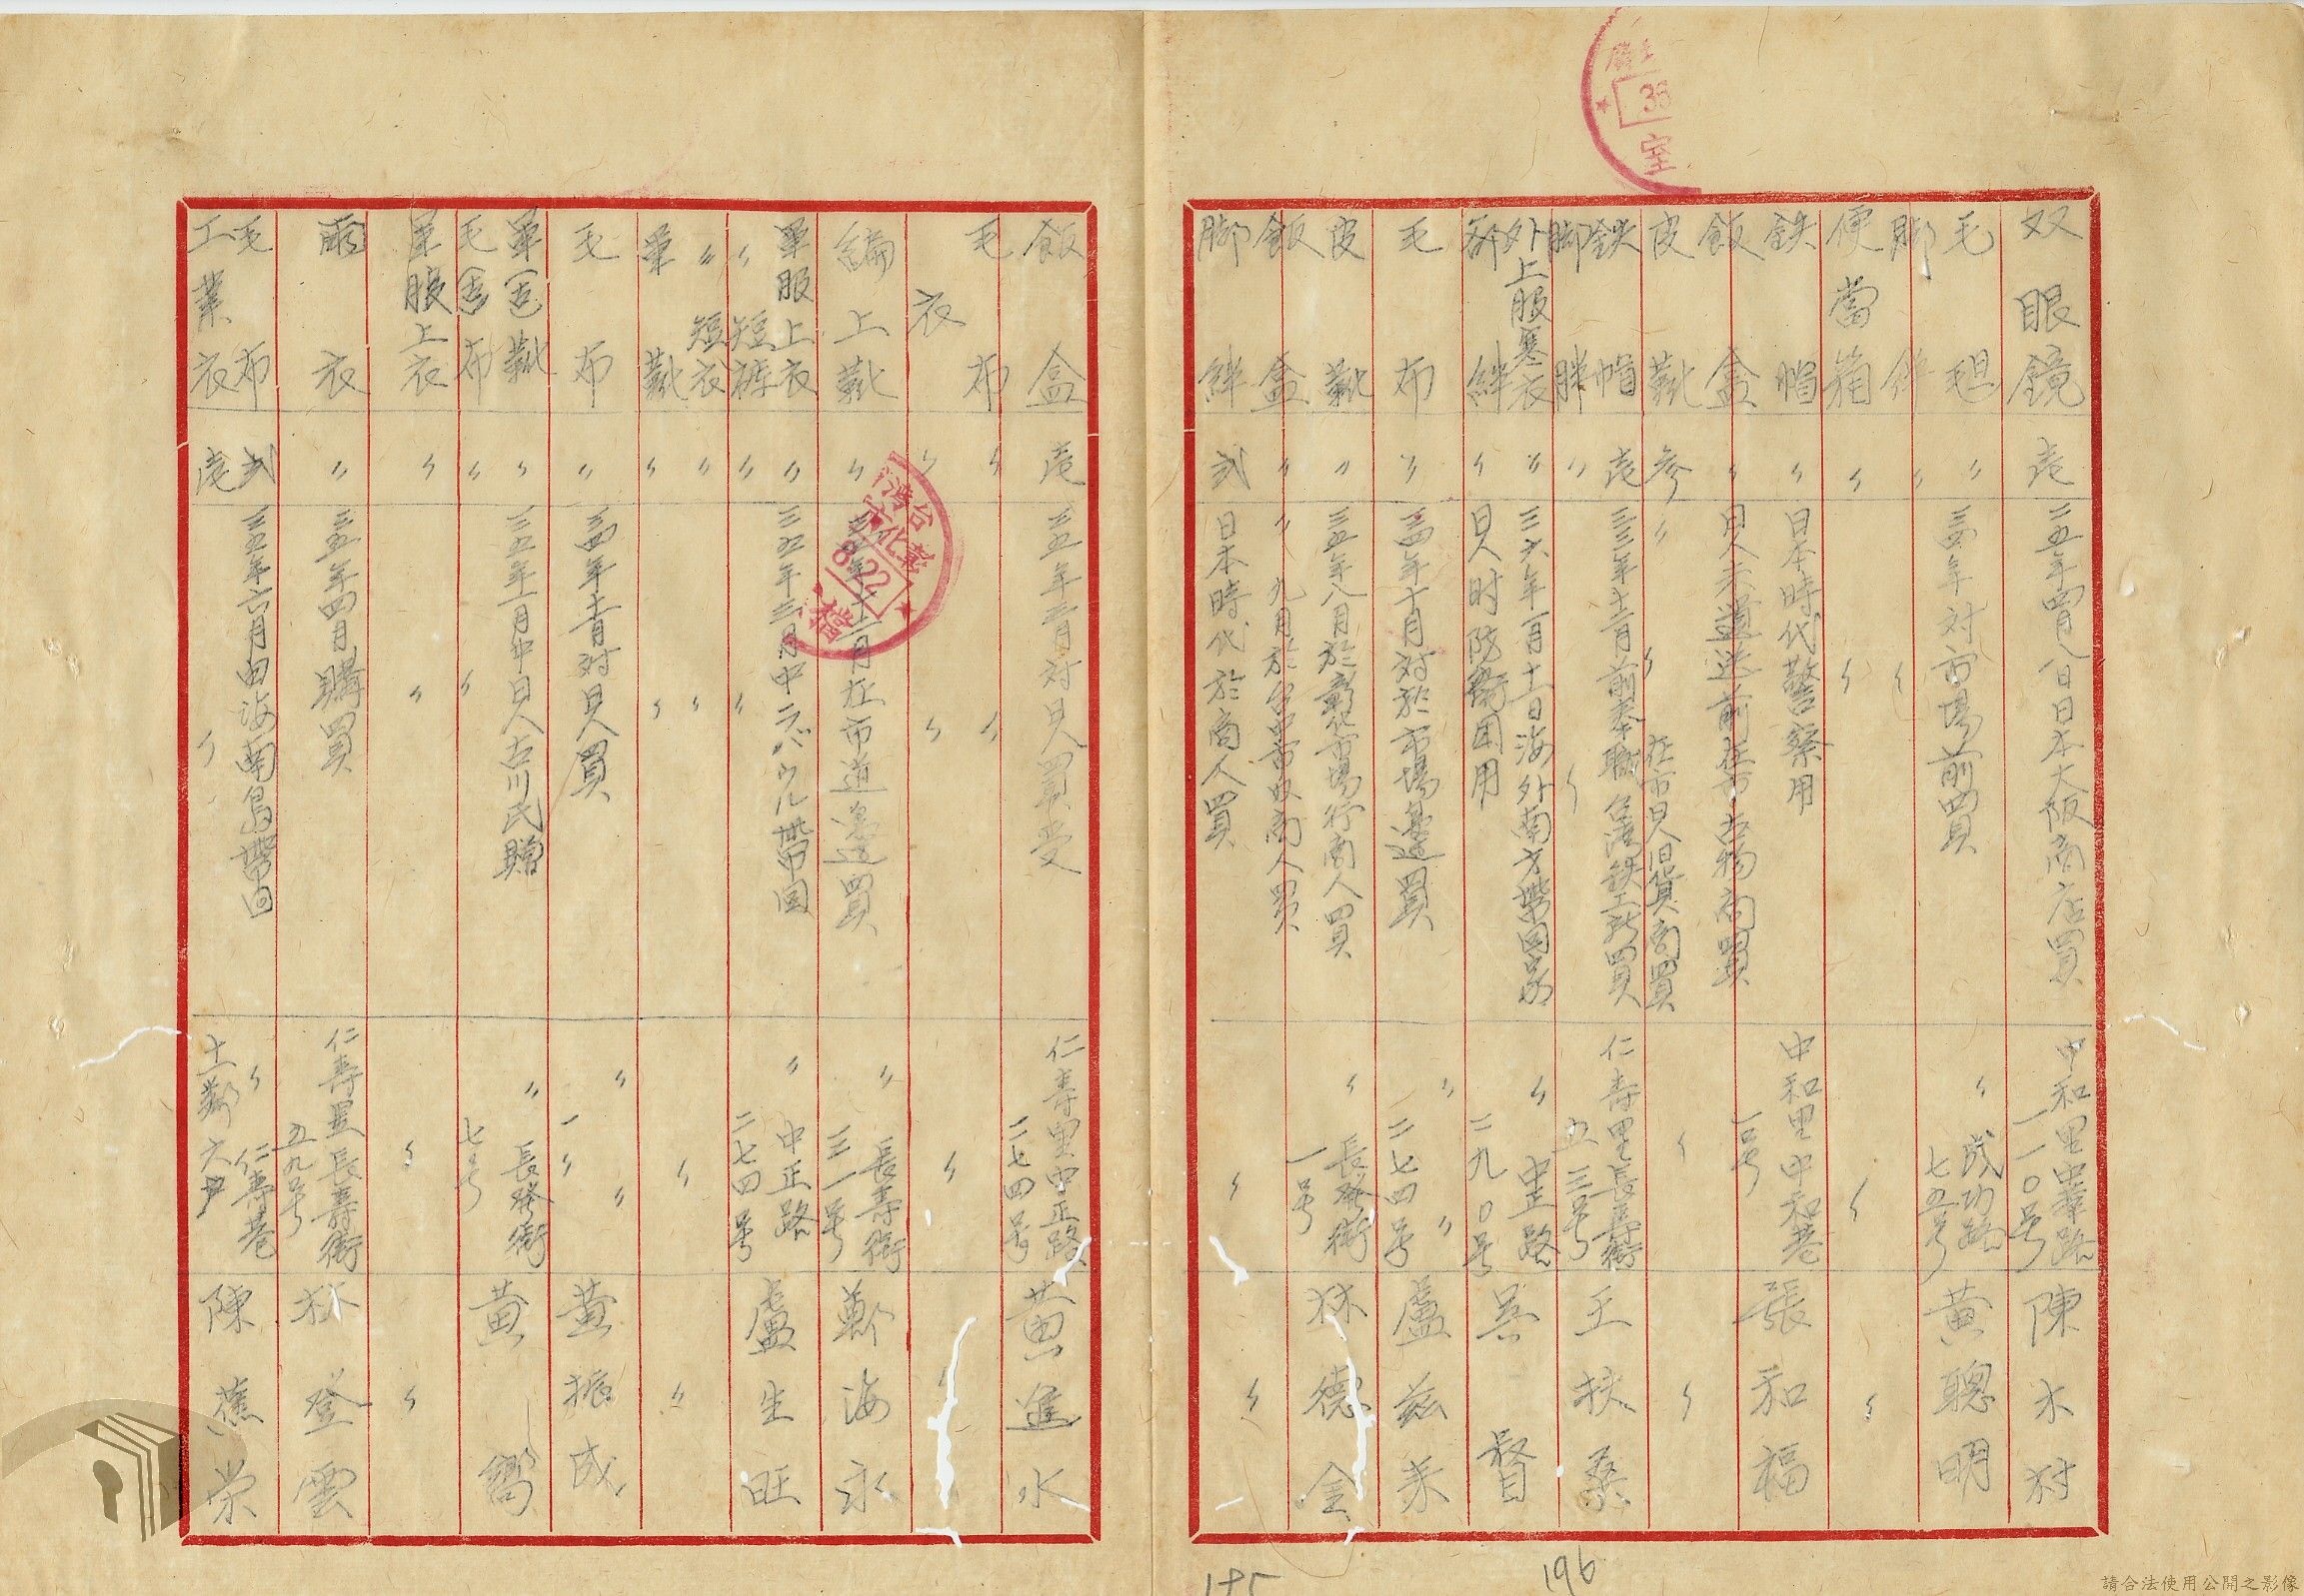 双眼鏡 壱 二五年四月八日日本大阪商店買 中和里中華路一一〇号 陳木村
毛毯 〃 三四年対市場前買 〃 成功路七五号 黄聰明
脚絆 〃 〃
便當箱 〃 〃 〃 〃
鉄帽 〃 日本時代警察用 中和里中和巷一号 張和福
飯盒 〃 日人未遣送前在市古物商買
皮靴 参 〃 在市日人旧貨商買 〃 〃
鉄帽 壱 三三年十二月前奉職 鉄工所買 仁寿里長寿街五三号 王扶桑
脚絆 〃 〃
外上服寒衣 〃 三六年一月十一日海外南方帶回家 〃 中正路二九〇号 吳督
脚絆 〃 日人时防衛囯用
毛布 〃 三四年十月対於市場邊買 〃 〃 二七四号 盧茲来
皮靴 〃 三五年八月於彰化市場行商人買 〃 長發街一号 林德金
飯盒 〃 〃 九月於台中市場商人買
脚絆 弍 日本時代於商人買 〃 〃
飯盒 壱 三五年三月対日人買受 仁寿里中正路二七四号 黃進水
毛布 〃 〃
衣 〃 〃 〃 〃
編上靴 〃 三五年十二月在市道邊買 〃 長寿街三一号 鄭海永
軍服上衣 〃 三五年三月中ラバウル帶囬 〃 中正路二七四号 盧生旺
〃 短褲 〃 〃
〃 短衣 〃 〃
軍靴 〃 〃 〃 〃
毛布 〃 三四年十一月対日人買 〃 〃 一〃 黃振成
軍用靴 〃 三五年一月中日人古川氏贈 〃 長發街七号 黃嚮
毛布 〃 〃
軍服上衣 〃 〃 〃 〃
雨衣 〃 三五年四月購買 仁寿里長寿街五九号 林登雲
毛布 弍 三五年六月由海南島帶回 〃 仁寿巷十鄰六戸 陳蕉栄
工業衣 壱 〃
196
195
38
室
台灣
彰化市
8.22
請合法使用公開之影像